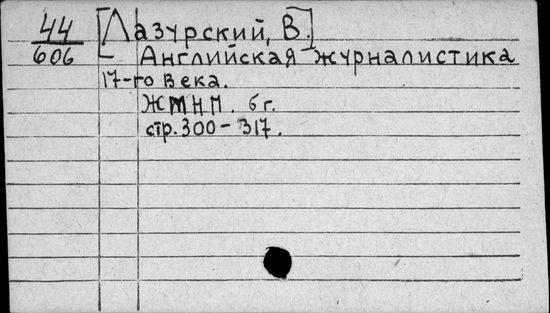 44 [Лазурский, В.]
606 – Английская журналистика
17-го века.
ЖМНП. 6 г.
стр. 300 – 317.